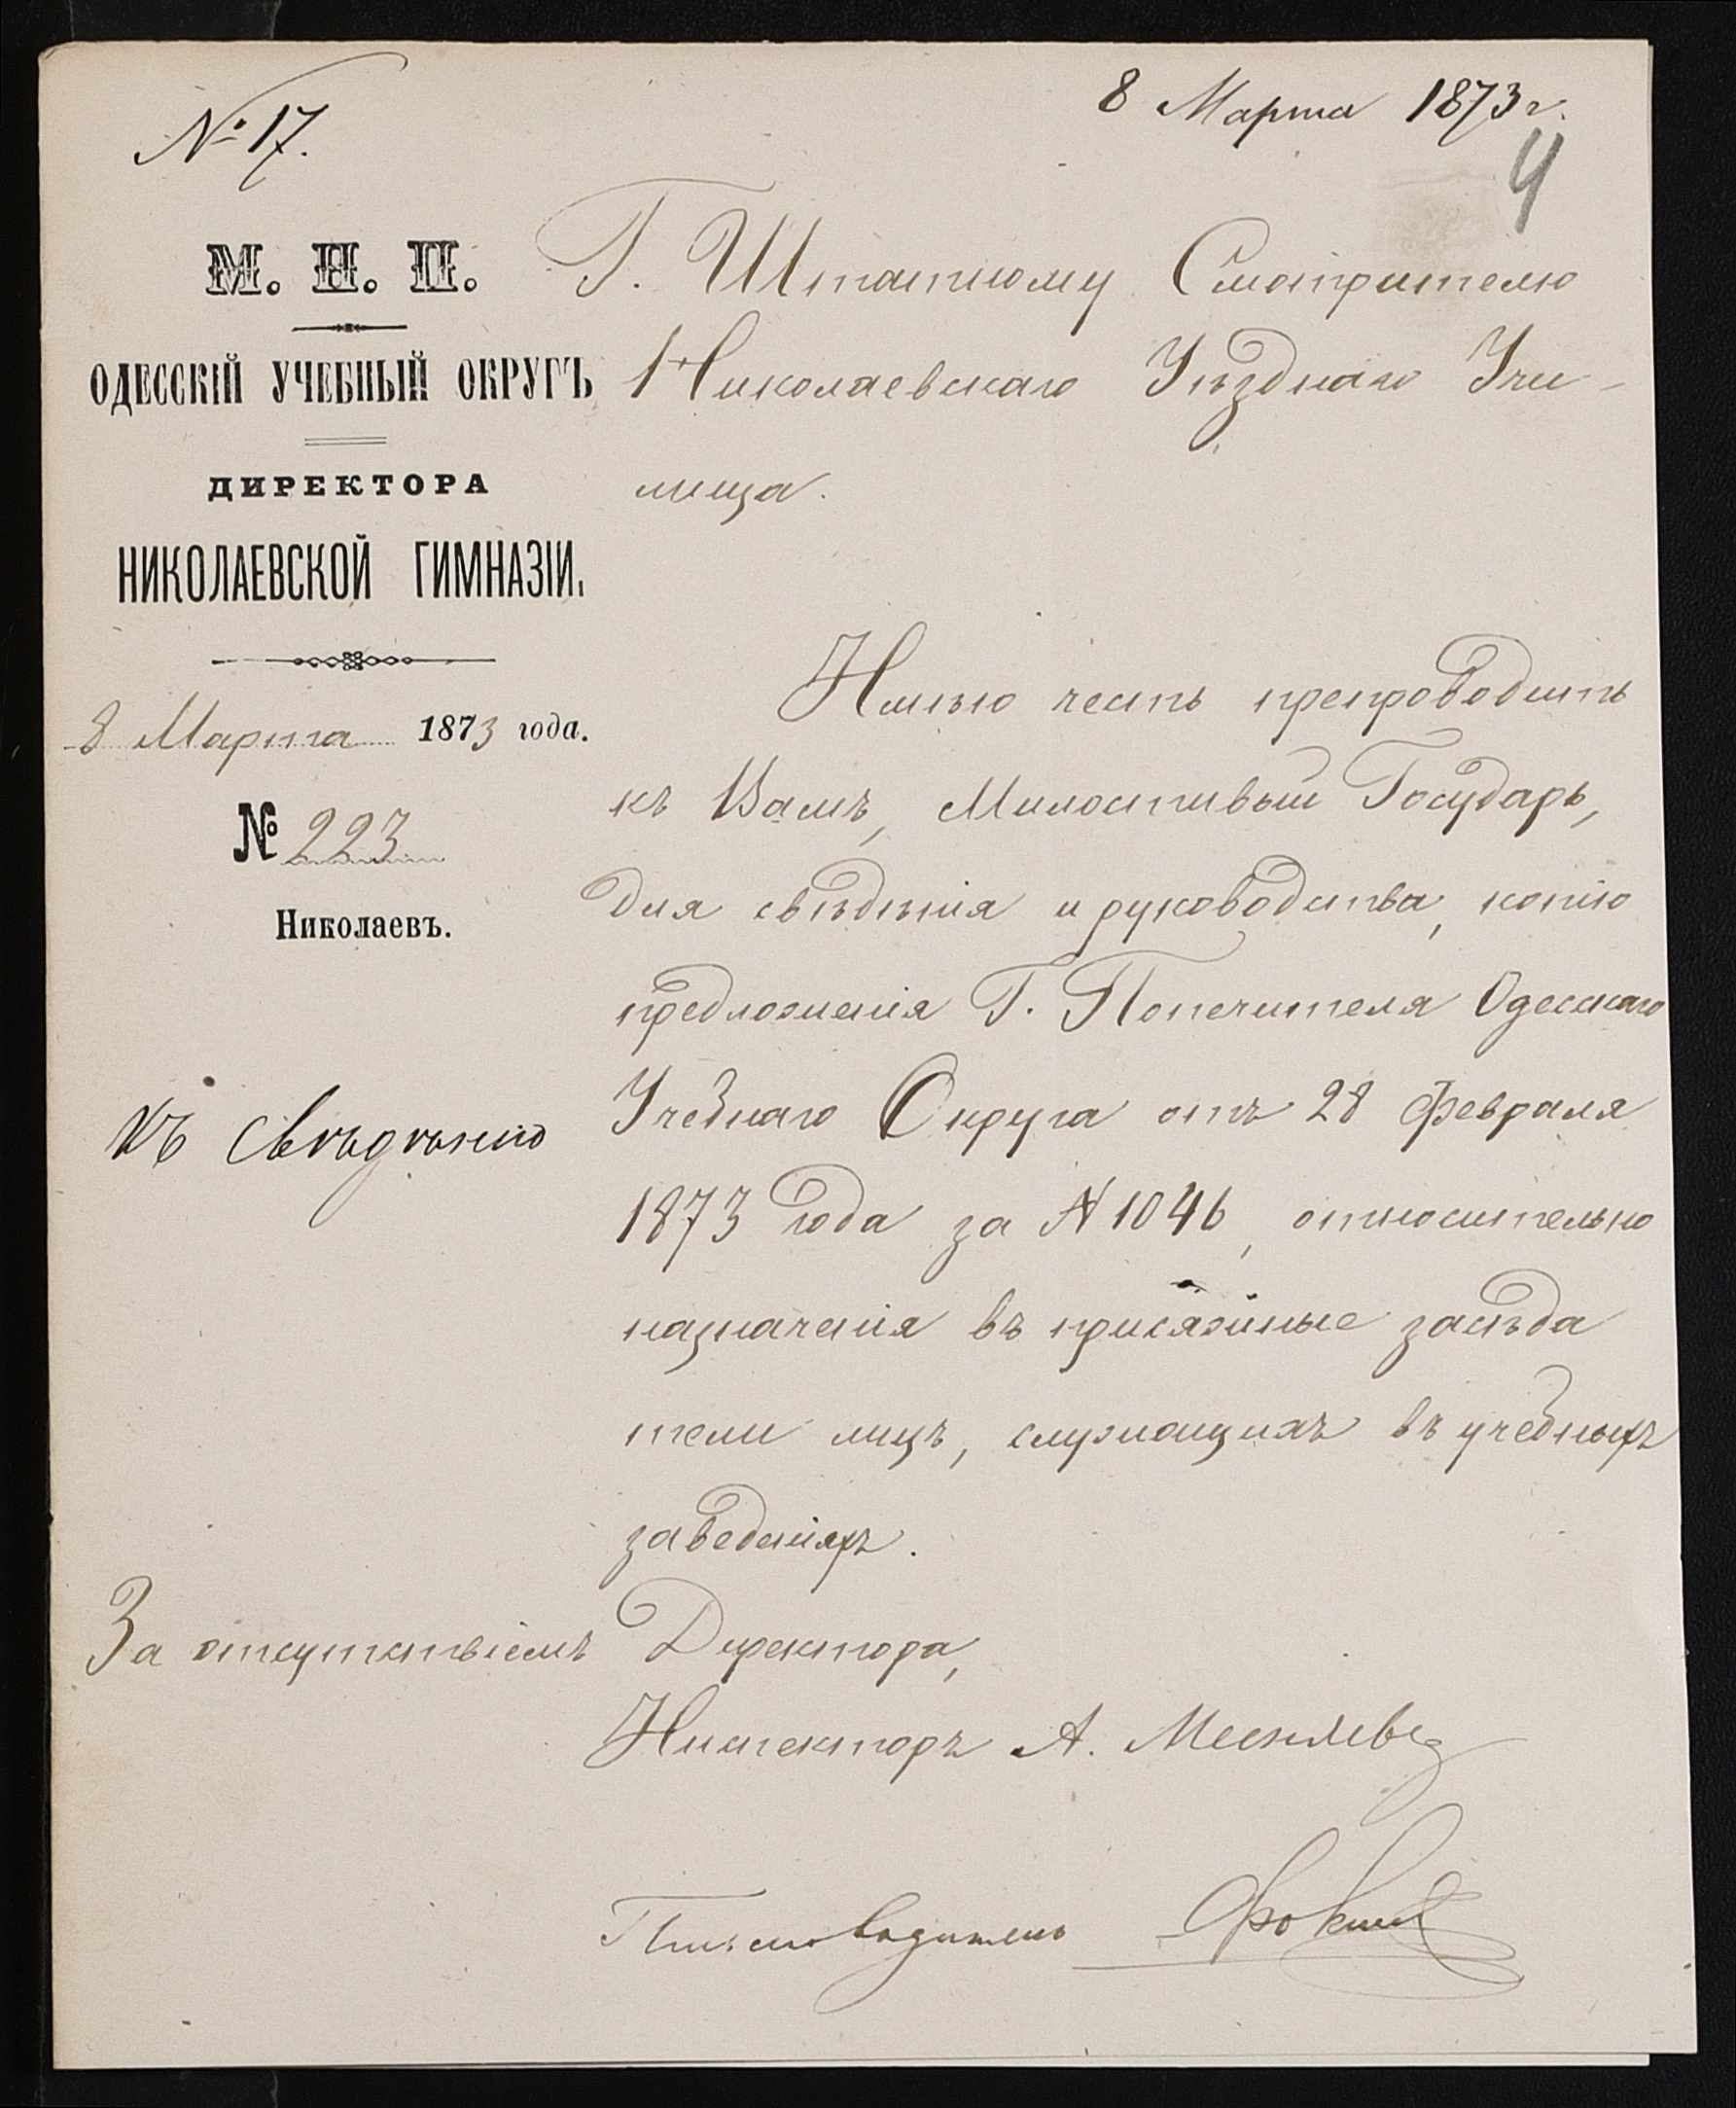 № 17.
8 Марта 1873 г.
4
М. Н. П.
ОДЕССКІЙ УЧЕБНЫЙ ОКРУГЪ
ДИРЕКТОРА
НИКОЛАЕВСКОЙ ГИМНАЗІИ.
8 Марта 1873 года.
№ 223
Николаевъ.
Къ свѣдѣнію
Г. Штатному Смотрителю
Николаевскаго Уѣзднаго Учи-
лища.
Имѣю честь препроводить
къ Вамъ, Милостивый Государь,
для свѣдѣнія и руководства, копію
предложенія Г. Попечителя Одесскаго
Учебнаго Округа отъ 28 Февраля
1873 года за № 1046, относительно
назначенія въ присяжные засѣда
тели лицъ, служащихъ въ учебныхъ
заведеніяхъ.
За отсутствіемъ Директора,
Инспекторъ А.
Письмоводитель